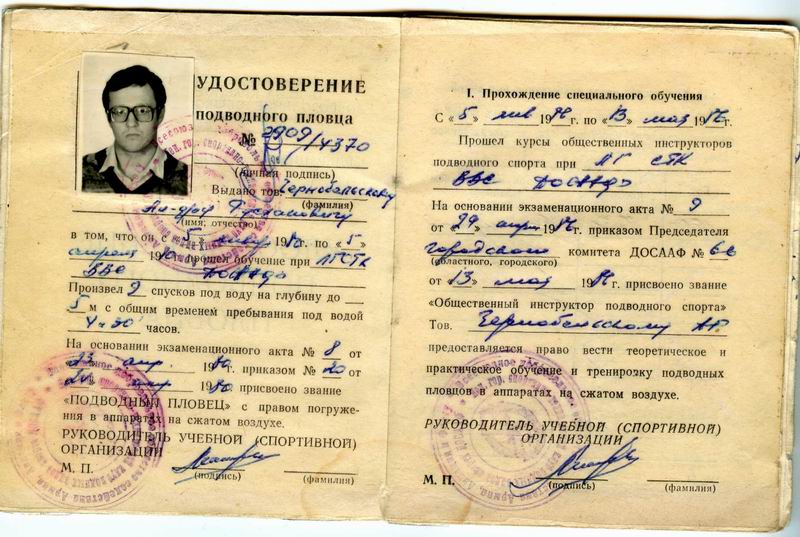 УДОСТОВЕРЕНИЕ
подводного пловца
№ 2909
14370
(личная подпись)
Выдано тов. Чернобельскому
(фамилия)
(имя, отчество)
в том, что он с «5» 19 г. по «5»
апреля 19 г. прошел обучение при
ВВС ДОСААФ
Произвел 9 спусков под воду на глубину до
5 м с общим временем пребывания под водой
часов.
На основании экзаменационного акта № 8 от
«23» апр. 19 г. приказом № 20 от
19 г. присвоено звание
«ПОДВОДНЫЙ ПЛОВЕЦ» с правом погруже-
ния в аппаратах на сжатом воздухе.
РУКОВОДИТЕЛЬ УЧЕБНОЙ (СПОРТИВНОЙ)
ОРГАНИЗАЦИИ
М. П.
(подпись) (фамилия)
I. Прохождение специального обучения
С «5» янв 19 г. по «13» мая 19 г.
Прошел курсы общественных инструкторов
подводного спорта при ЛГ СТК
ВВС ДОСААФ
На основании экзаменационного акта № 9
от «29» апр. 19 г. приказом Председателя
городского комитета ДОСААФ №
(областного, городского)
от «13» мая 19 г. присвоено звание
«Общественный инструктор подводного спорта»
Тов. Чернобельскому АР
предоставляется право вести теоретическое и
практическое обучение и тренировку подводных
пловцов в аппаратах на сжатом воздухе.
РУКОВОДИТЕЛЬ УЧЕБНОЙ (СПОРТИВНОЙ)
ОРГАНИЗАЦИИ
М. П.
(подпись) (фамилия)